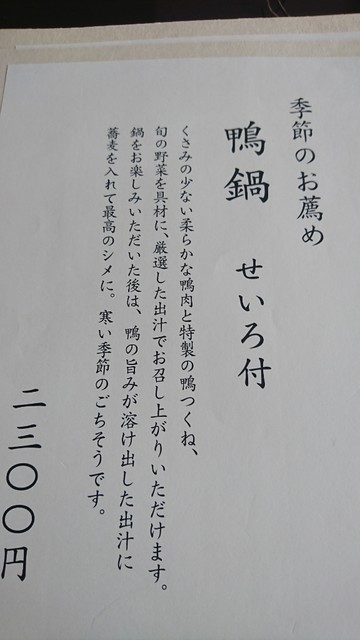 季節のお薦め
鴨鍋 せいろ付
くさみの少ない柔らかな鴨肉と特製の鴨つくね、
旬の野菜を具材に、厳選した出汁でお召し上がりいただけます。
鍋をお楽しみいただいた後は、鴨の旨みが溶け出した出汁に
蕎麦を入れて最高のシメに。寒い季節のごちそうです。
二三〇〇円